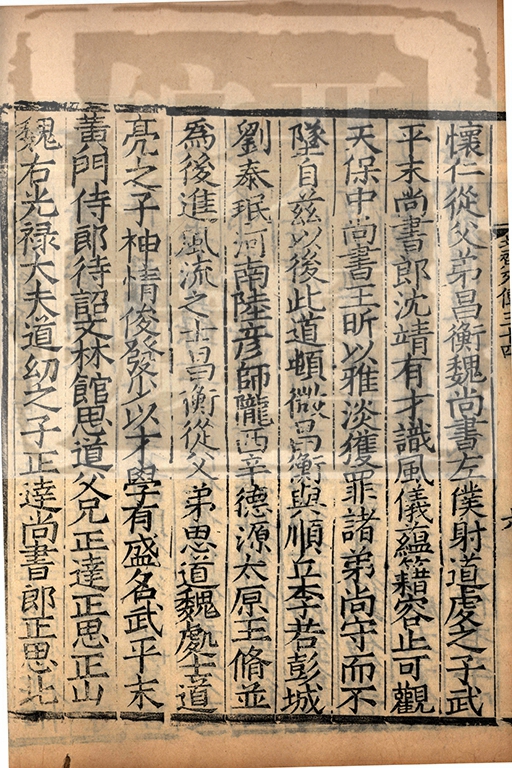 懷仁從父弟昌衡魏尚書左僕射道虔之子武
平末尚書郎沈靖有才識風儀蘊籍容止可觀
天保中尚書王昕以雅淡獲罪諸弟尚守而不
墜自茲以後此道頓微昌衡與順丘李若彭城
劉泰珉河南陸彦師隴西辛德源太原王脩並
為後進風流之士昌衡從父弟思道魏處士道
亮之子神情俊發少以才學有盛名武平末
黄門侍郎待詔文林館思道父兄正達正思正山
魏右光禄大夫道幼之子正達尚書郎正思北